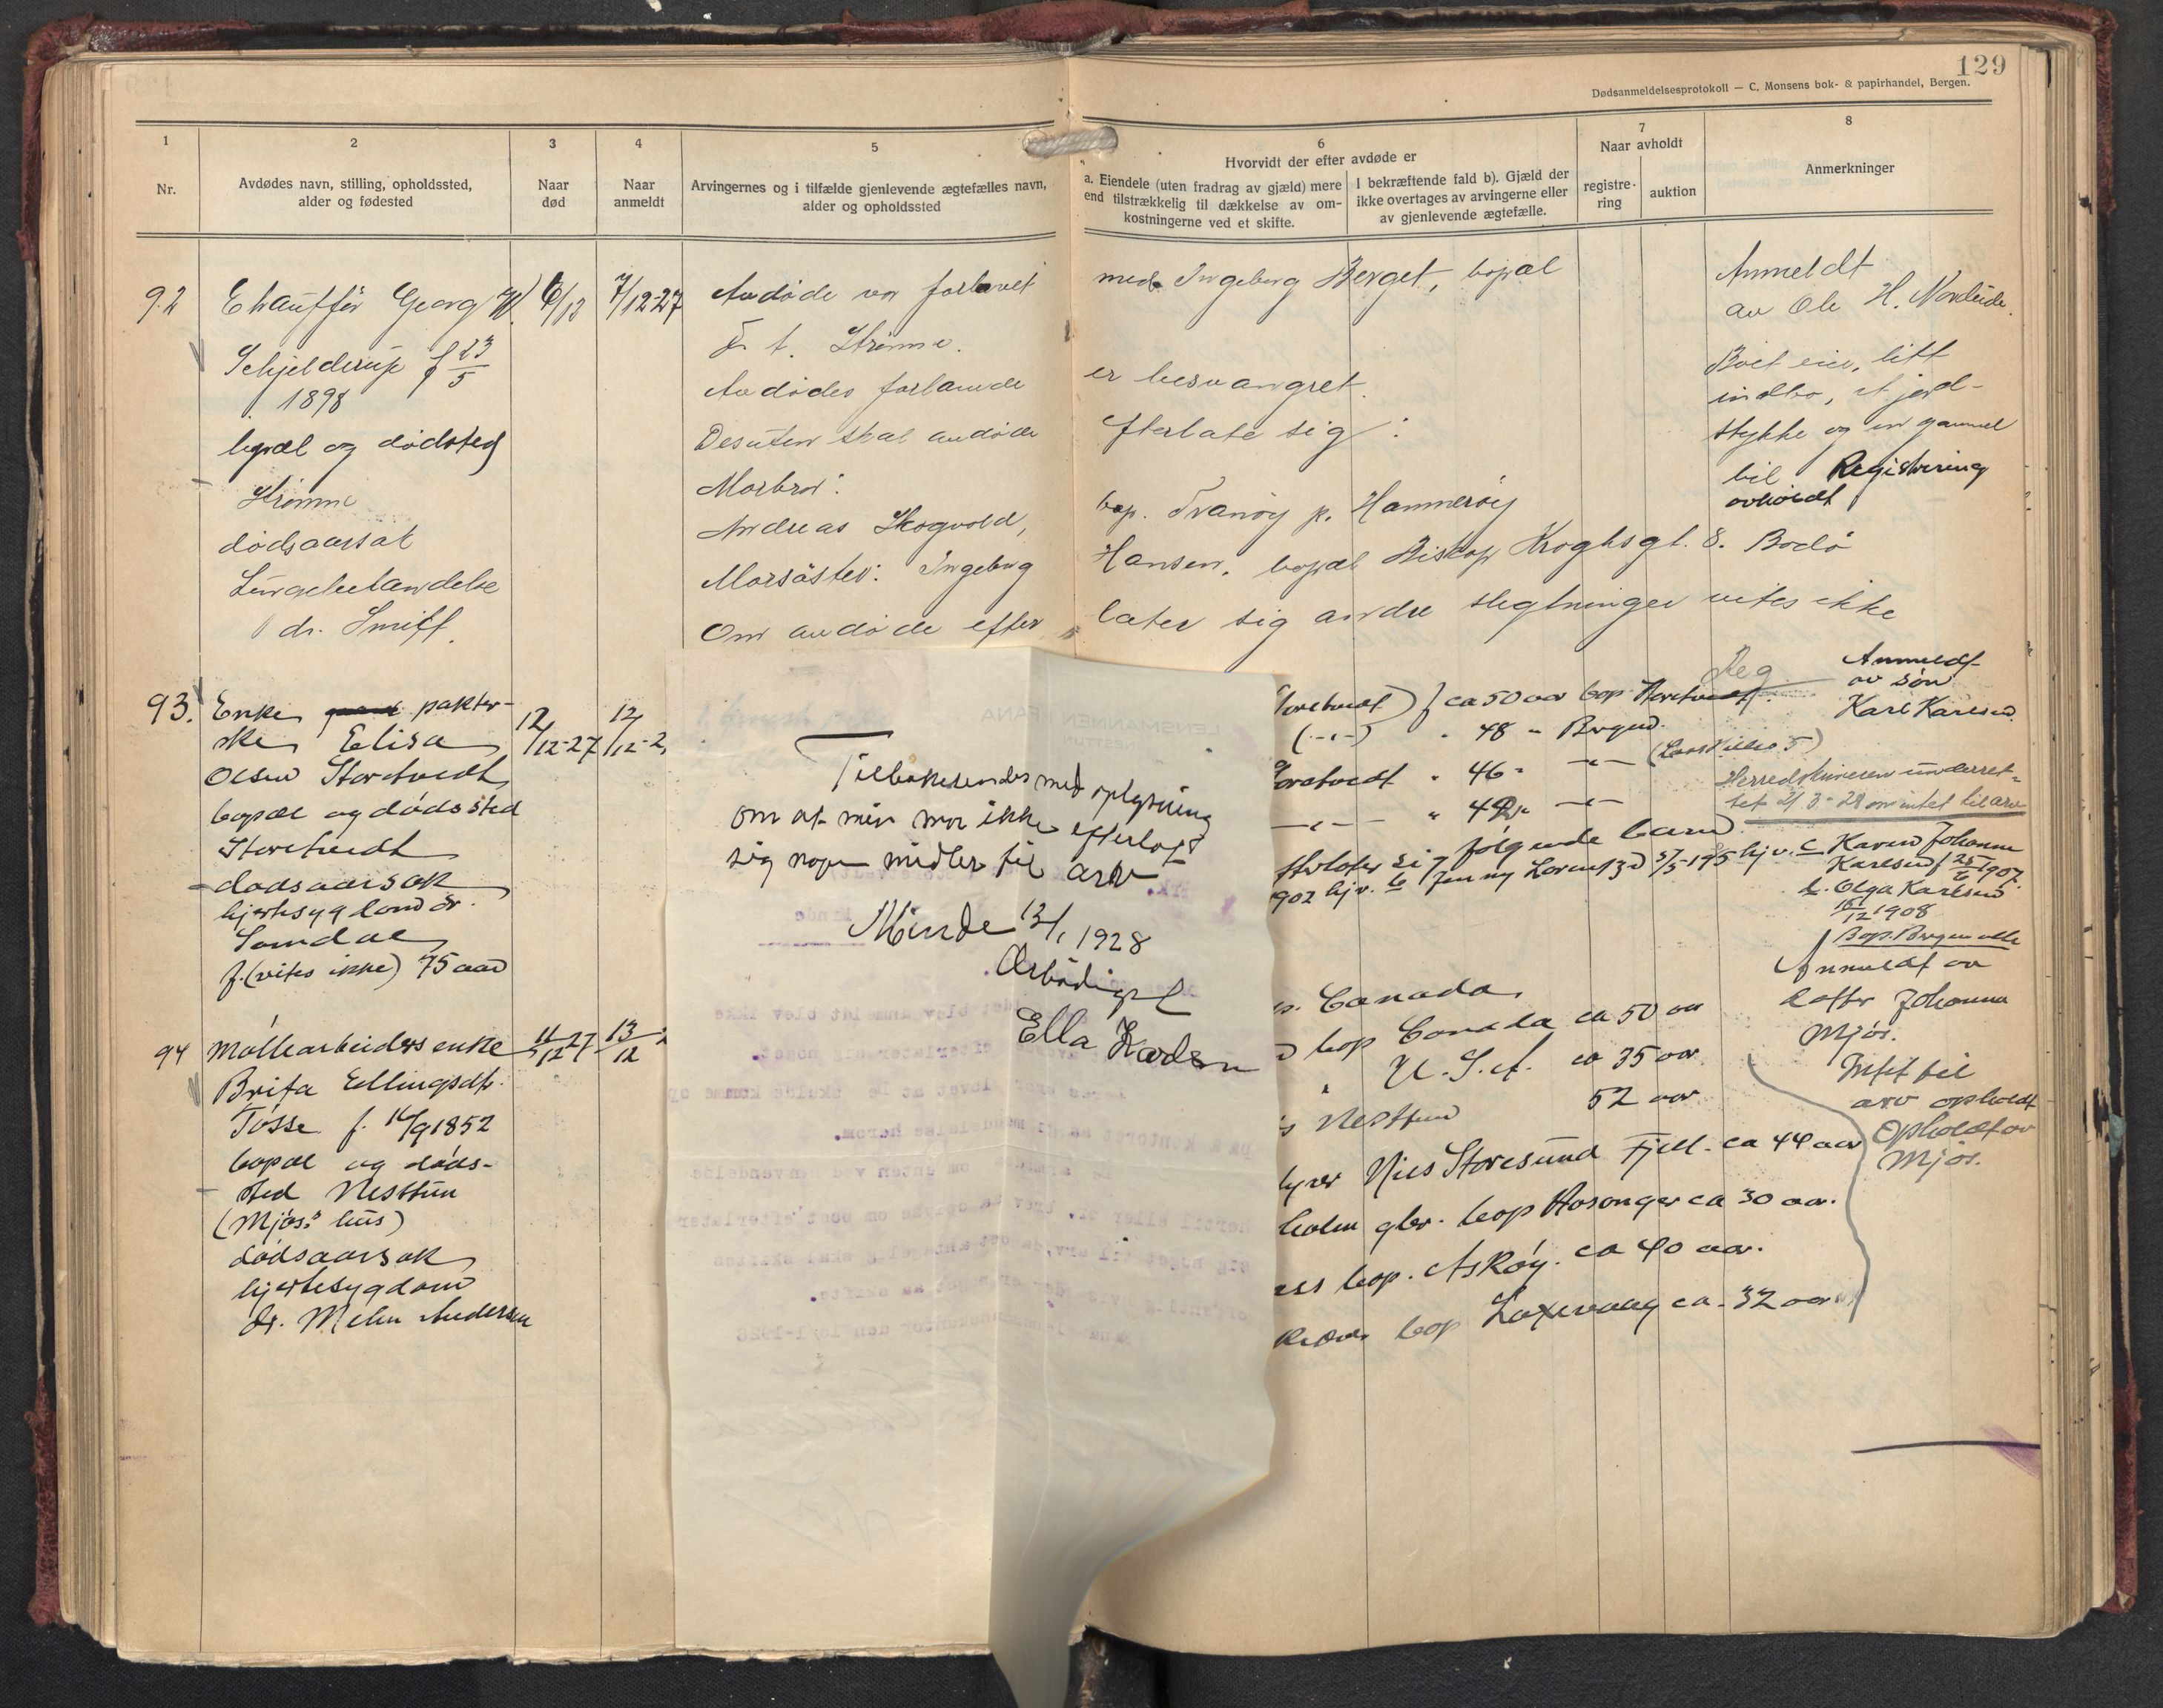 129
Dødsanmeldelsesprotokoll — C. Monsens bok- & papirhandel, Bergen.
1
2
3
4
5
6
7
8
Nr.
Avdødes navn, stilling, opholdssted,
alder og fødested
Naar
død
Naar
anmeldt
Arvingernes og i tilfælde gjenlevende ægtefælles navn,
alder og opholdssted
Hvorvidt der efter avdøde er
a. Eiendele (uten fradrag av gjæld) mere
end tilstrækkelig til dækkelse av om-
kostningerne ved et skifte.
I bekræftende fald b). Gjæld der
ikke overtages av arvingerne eller
av gjenlevende ægtefælle.
Naar avholdt
registre-
ring
auktion
Anmerkninger
92
Chauffør Georg W.
Schjelderup f 23/5
1898
bopæl og dødsted
Strømme
dødsaarsak
Lungebetændelse
dr. Smitt.
6/12
7/12-27
Avdøde var forlovet med Ingeborg Berget, bopæl
f. t. Strømme.
Avdødes forlovede er besvangret.
Desuten skal avdøde efterlate sig:
Morbror:
Andreas Skogvold, bop. Tranøy p. Hammerøy
Morsøster: Ingeborg Hansen, bopæl Biskop Kroghsgt. 8. Bodø
Om avdøde efterlater sig andre slegtninger vites ikke
Anmeldt
av Ole H. Nordeide.
Boet eier, litt
indbo, et jord-
stykke og en gammel
bil Registrering
avholdt
93.
Enke pakter-
ske Elisa
Olsen Storetvedt
bopæl og dødssted
Storetvedt
dødsaarsak
hjertesygdom dr.
Samdal
f. (vites ikke) 75 aar
12/12-27
12/12-2
Storetvedt) f ca 50 aar bop Storetvedt.
48 " Bergen.
Storetvedt " 46 "
" 42 "
efterlater sig følgende barn
1902 hjv. b Jenny Lorentzen
c Karen Johanne
Karlsen f 25/6 1907.
d. Olga Karlsen
15/12 1908
Bop. Bergen alle
Reg
Anmeldt
av søn
Karl Karlsen.
Herredskriveren underret-
tet 2/3-28 om intet til arv
94
Møllearbeiders enke
Brita Ellingsdtr.
Tøsse f. 14/9 1852
bopæl og døds-
sted Nesttun
(Mjøs's hus)
dødsaarsak
hjertesygdom
dr. Mohn Andersen
11/12 27
13/12
Canada
bop Canada ca 50 aar
" U.S.A. ca 35 aar
Nesttun 52 aar
Nils Storesund Fjell. ca 44 aar
holm gbr. bop Hosanger ca 30 aar.
bop. Askøy. ca 40 aar.
bop Laxevaag ca. 32 aar
Anmeldt av
datter Johanna
Mjøs.
Intet til
arv opholdt
Opholdt av
Mjøs.
Tilbakesendes med oplysning
om at min mor ikke efterlot
sig nogen midler til arv
Minde 13/1 1928
Ærbødigst
Ella Karlsen
LENSMANNEN I FANA